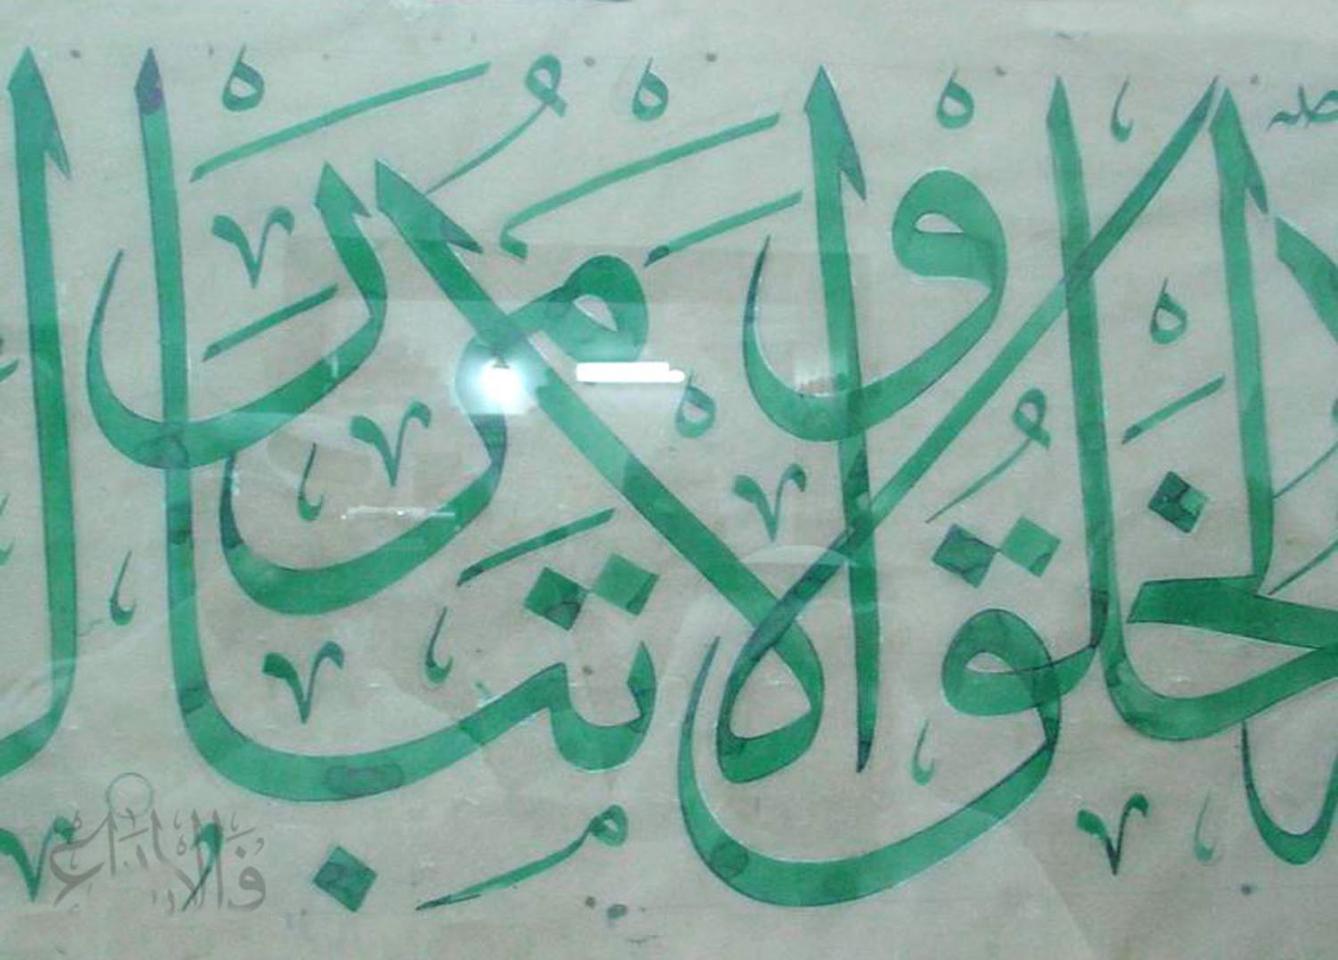 الخلق والامر تبارك ا